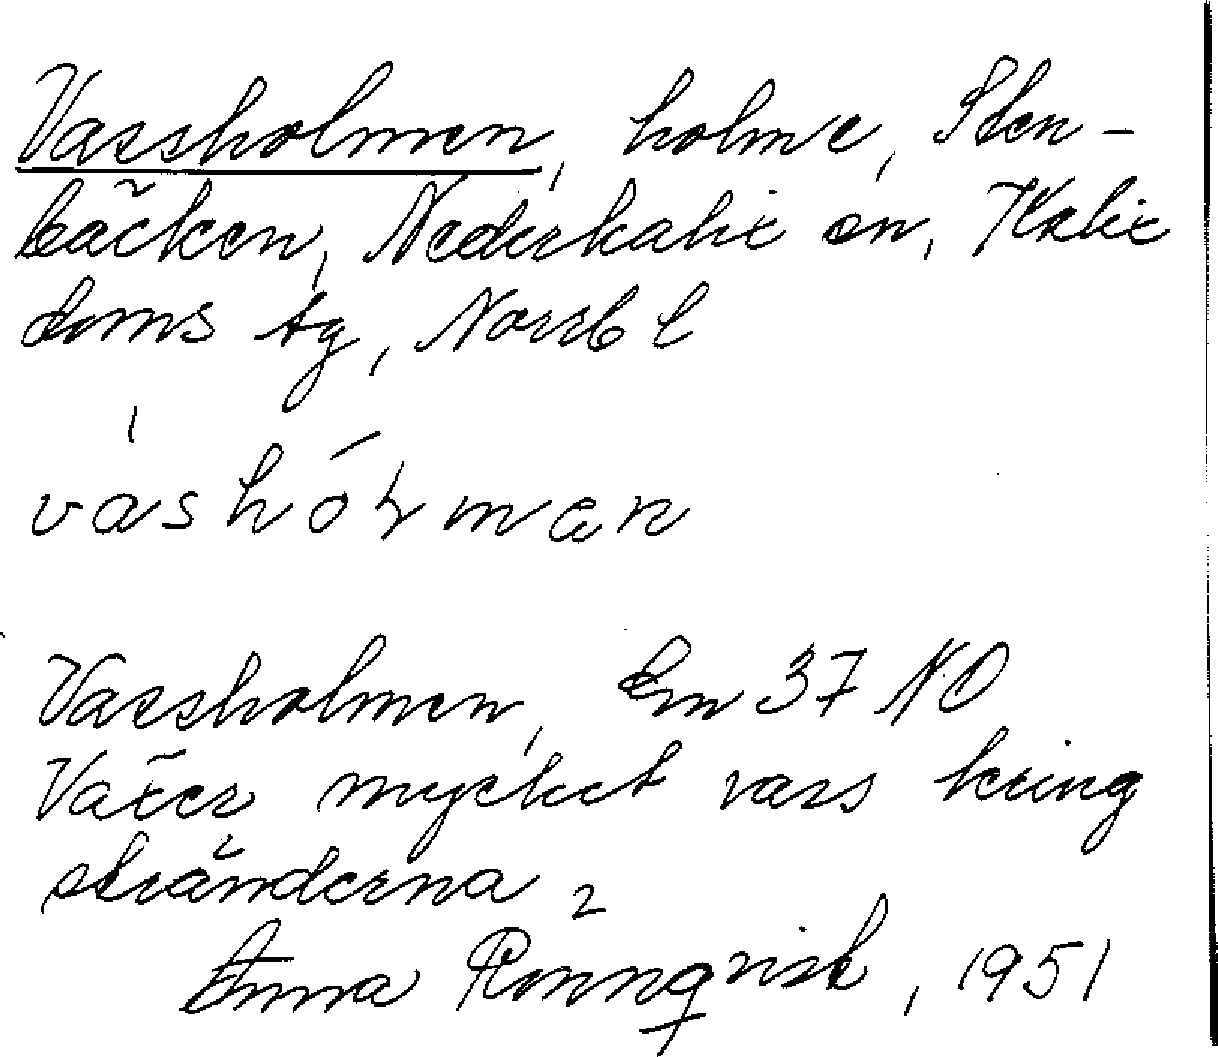 Vassholmen, holme, Sten-
bäcken, Nederkalix sn, Kalix
doms tg, Norrb l
vashólman
Vassholmen, Em 37 NO
Växer mycket vass kring
stränderna.
Anna Rönnqvist, 1951